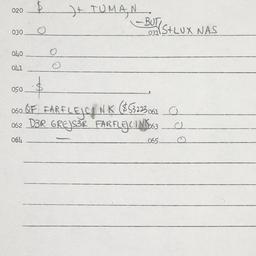 020 $ )+ TUMAN
BUT/
030 O 033 (S+LUX NAS
040 O
041 O
050 $
060 GF FARFLEJCINK ($53223 061 O
062 D3R GREJS3R FARFLEJCINK 063 O
064 — 065 O